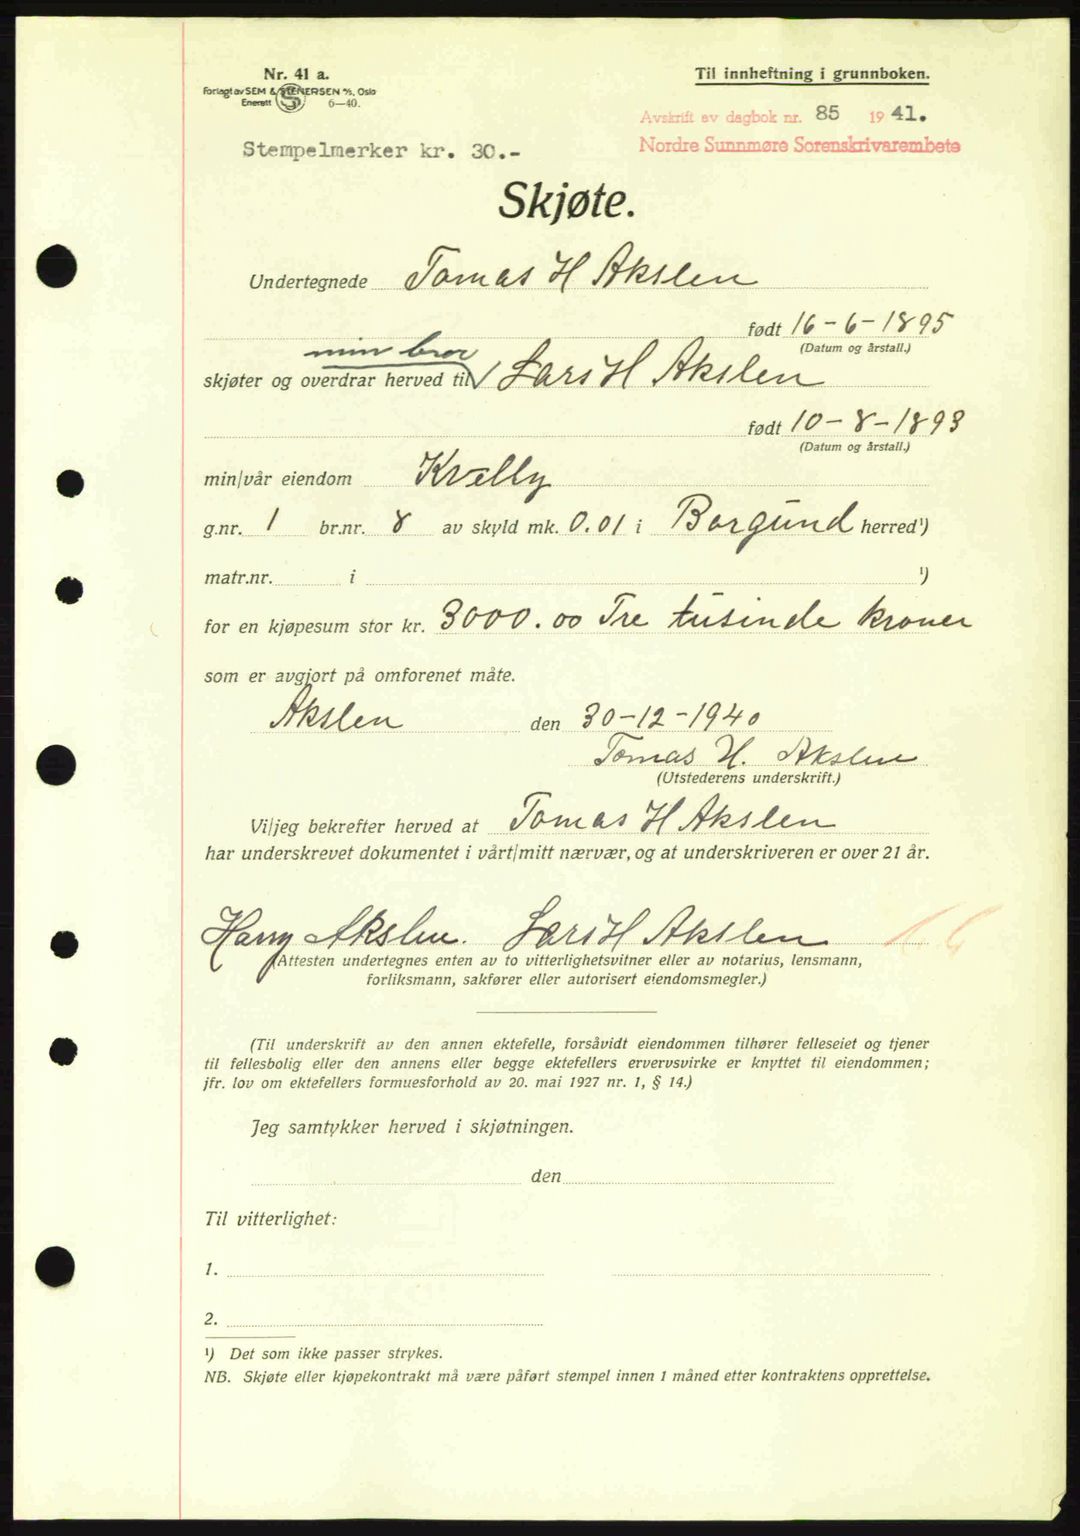 Nr. 41 a.
Forlagt av SEM & STENERSEN A/S, Oslo
Enerett S 6—40.
Til innheftning i grunnboken.
Avskrift av dagbok nr. 85 1941.
Nordre Sunnmøre Sorenskrivarembete
Stempelmerker kr. 30.-
Skjøte.
Undertegnede Tomas H Akslen
født 16-6-1895
(Datum og årstall.)
min bror
skjøter og overdrar herved til √ Lars H Akslen
født 10-8-1893
(Datum og årstall.)
min/vår eiendom Kvælly
g.nr. 1 br.nr. 8 av skyld mk. 0.01 i Borgund herred¹)
matr.nr. i ¹)
for en kjøpesum stor kr. 3000.00 Tre tusinde kroner
som er avgjort på omforenet måte.
Akslen den 30-12-1940
Tomas H. Akslen
(Utstederens underskrift.)
Vi/jeg bekrefter herved at Tomas H Akslen
har underskrevet dokumentet i vårt/mitt nærvær, og at underskriveren er over 21 år.
Harry Akslen. Lars H Akslen
(Attesten undertegnes enten av to vitterlighetsvitner eller av notarius, lensmann,
forliksmann, sakfører eller autorisert eiendomsmegler.)
(Til underskrift av den annen ektefelle, forsåvidt eiendommen tilhører felleseiet og tjener
til fellesbolig eller den annens eller begge ektefellers ervervsvirke er knyttet til eiendommen;
jfr. lov om ektefellers formuesforhold av 20. mai 1927 nr. 1, § 14.)
Jeg samtykker herved i skjøtningen.
den
Til vitterlighet:
1.
2.
¹) Det som ikke passer strykes.
NB. Skjøte eller kjøpekontrakt må være påført stempel innen 1 måned etter kontraktens opprettelse.